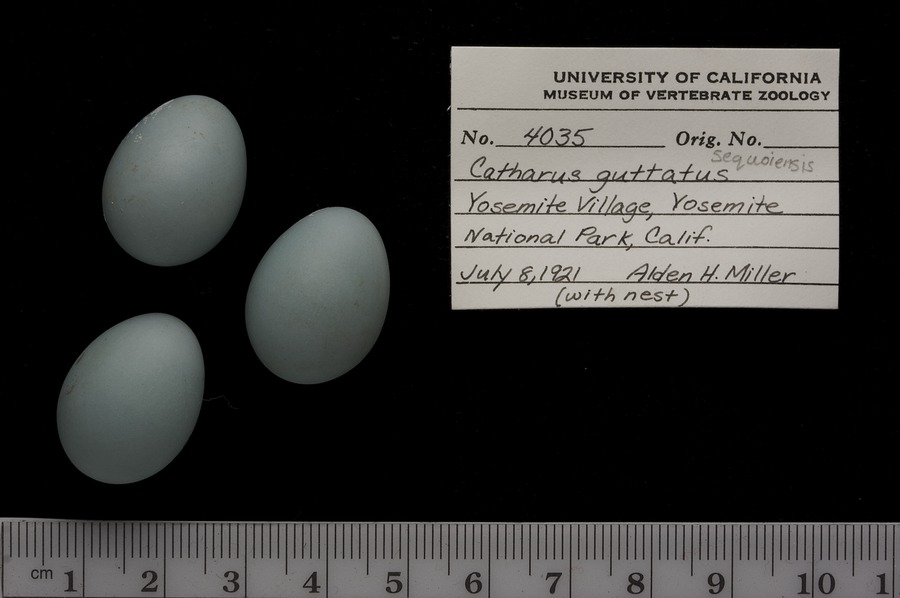 UNIVERSITY OF CALIFORNIA
MUSEUM OF VERTEBRATE ZOOLOGY
No. 4035 Orig. No.
sequoiensis
Catharus guttatus
Yosemite Village, Yosemite
National Park, Calif.
July 8, 1921 Alden H. Miller
(with nest)
cm 1 2 3 4 5 6 7 8 9 10 1